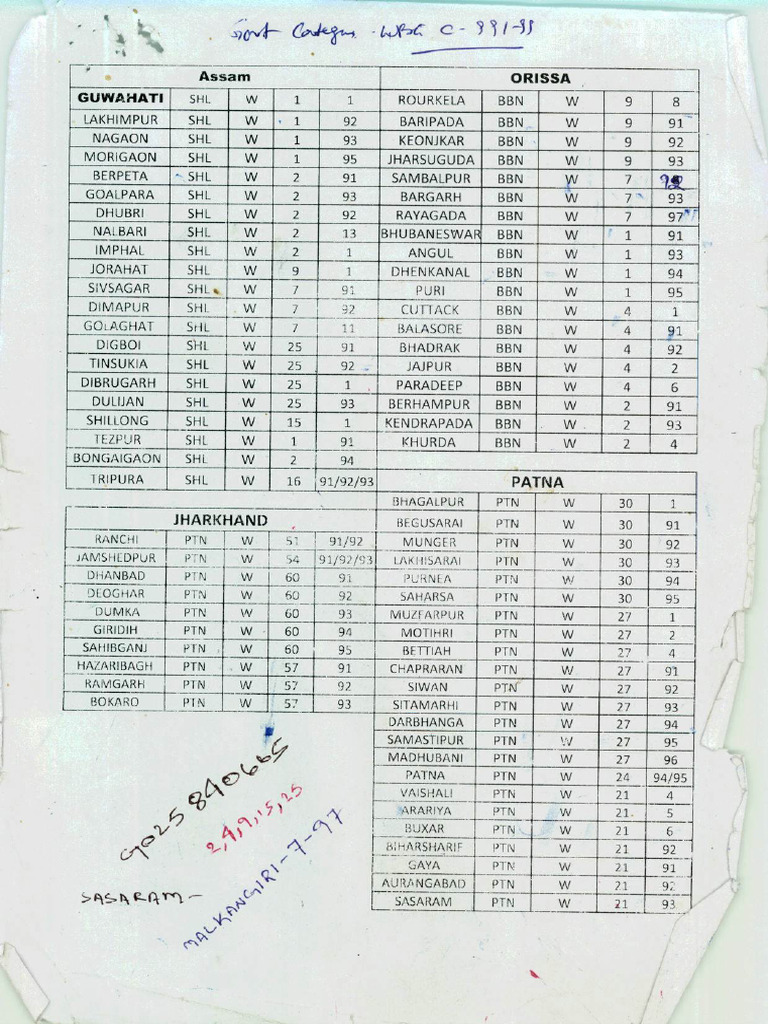 C-991-99
Assam
GUWAHATI SHL W 1 1
LAKHIMPUR SHL W 1 92
NAGAON SHL W 1 93
MORIGAON SHL W 1 95
BERPETA SHL W 2 91
GOALPARA SHL W 2 93
DHUBRI SHL W 2 92
NALBARI SHL W 2 13
IMPHAL SHL W 2 1
JORAHAT SHL W 9 1
SIVSAGAR SHL W 7 91
DIMAPUR SHL W 7 92
GOLAGHAT SHL W 7 11
DIGBOI SHL W 25 91
TINSUKIA SHL W 25 92
DIBRUGARH SHL W 25 1
DULIJAN SHL W 25 93
SHILLONG SHL W 15 1
TEZPUR SHL W 1 91
BONGAIGAON SHL W 2 94
TRIPURA SHL W 16 91/92/93
JHARKHAND
RANCHI PTN W 51 91/92
JAMSHEDPUR PTN W 54 91/92/93
DHANBAD PTN W 60 91
DEOGHAR PTN W 60 92
DUMKA PTN W 60 93
GIRIDIH PTN W 60 94
SAHIBGANJ PTN W 60 95
HAZARIBAGH PTN W 57 91
RAMGARH PTN W 57 92
BOKARO PTN W 57 93
ORISSA
ROURKELA BBN W 9 8
BARIPADA BBN W 9 91
KEONJKAR BBN W 9 92
JHARSUGUDA BBN W 9 93
SAMBALPUR BBN W 7
BARGARH BBN W 7 93
RAYAGADA BBN W 7 97
BHUBANESWAR BBN W 1 91
ANGUL BBN W 1 93
DHENKANAL BBN W 1 94
PURI BBN W 1 95
CUTTACK BBN W 4 1
BALASORE BBN W 4 91
BHADRAK BBN W 4 92
JAJPUR BBN W 4 2
PARADEEP BBN W 4 6
BERHAMPUR BBN W 2 91
KENDRAPADA BBN W 2 93
KHURDA BBN W 2 4
PATNA
BHAGALPUR PTN W 30 1
BEGUSARAI PTN W 30 91
MUNGER PTN W 30 92
LAKHISARAI PTN W 30 93
PURNEA PTN W 30 94
SAHARSA PTN W 30 95
MUZFARPUR PTN W 27 1
MOTIHRI PTN W 27 2
BETTIAH PTN W 27 4
CHAPRARAN PTN W 27 91
SIWAN PTN W 27 92
SITAMARHI PTN W 27 93
DARBHANGA PTN W 27 94
SAMASTIPUR PTN W 27 95
MADHUBANI PTN W 27 96
PATNA PTN W 24 94/95
VAISHALI PTN W 21 4
ARARIYA PTN W 21 5
BUXAR PTN W 21 6
BIHARSHARIF PTN W 21 92
GAYA PTN W 21 91
AURANGABAD PTN W 21 92
SASARAM PTN W 21 93
9025840665
2,4,9,15,25
SASARAM-
MALKANGIRI-7-97